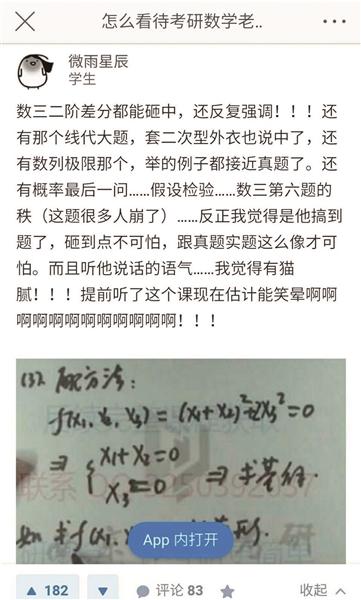 怎么看待考研数学老..
微雨星辰
学生
数三二阶差分都能砸中，还反复强调！！！还
有那个线代大题，套二次型外衣也说中了，还
有数列极限那个，举的例子都接近真题了。还
有概率最后一问……假设检验……数三第六题的
秩（这题很多人崩了）……反正我觉得是他搞到
题了，砸到点不可怕，跟真题实题这么像才可
怕。而且听他说话的语气……我觉得有猫
腻！！！提前听了这个课现在估计能笑晕啊啊
啊啊啊啊啊啊啊啊啊啊啊！！！
(3). 配方法：
f(x₁, x₂, x₃) = (x₁+x₂)²+2x₃²=0
⇒ { x₁+x₂=0
x₃=0 ⇒ 求基础.
联系
如 求f(x₁,
App 内打开
182
评论 83
收起